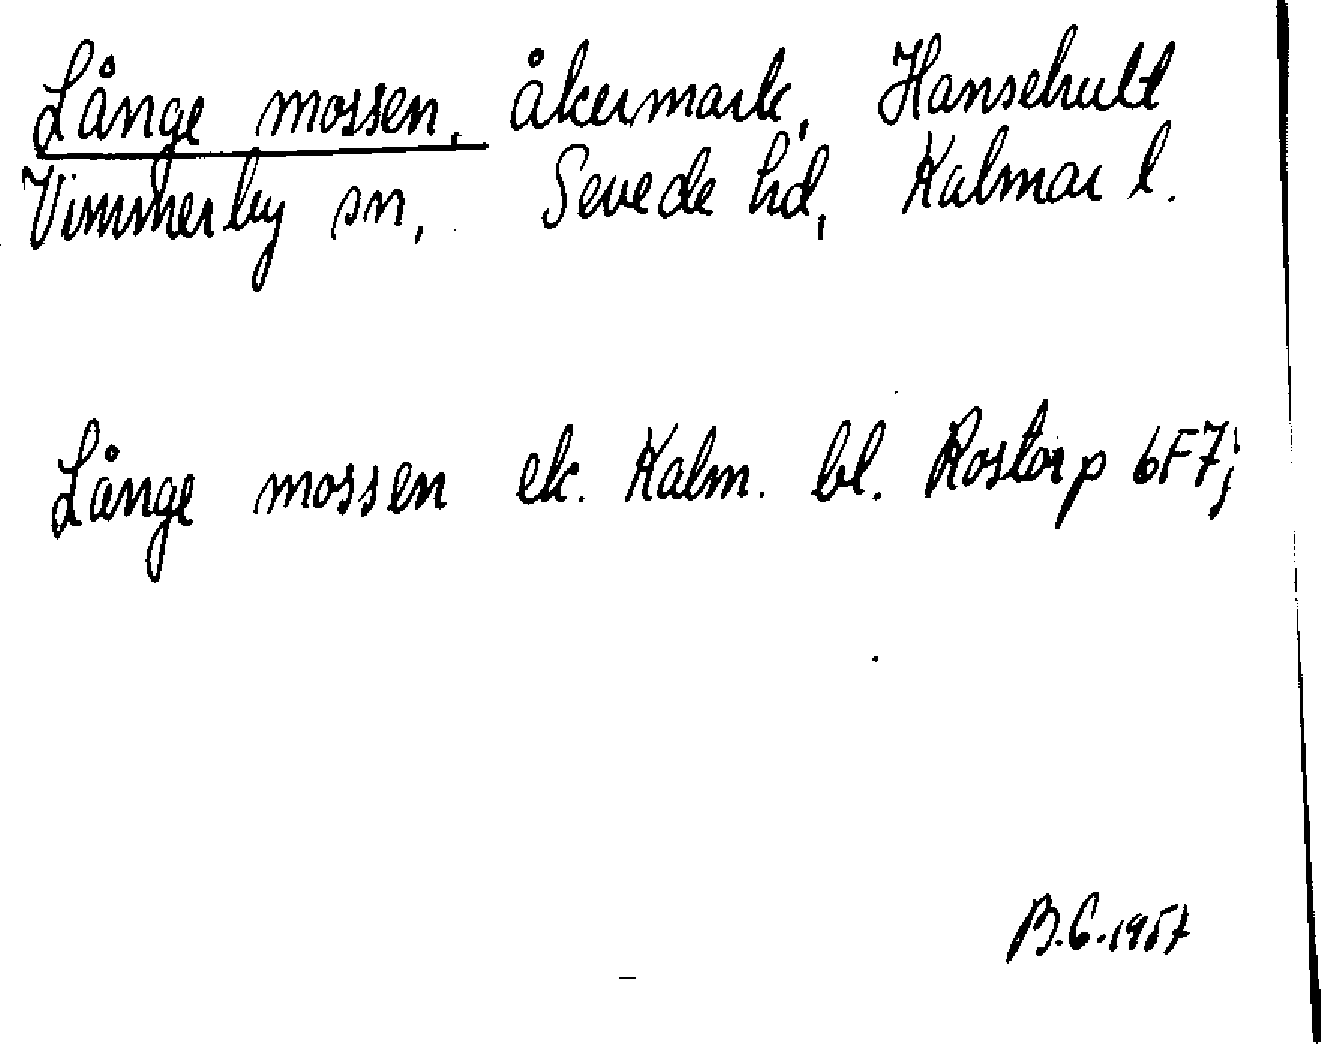 Långe mossen, åkermark, Hansehult
Vimmerby sn, Sevede hd, Kalmar l.
Långe mossen ek. Kalm. bl. Rostorp 6F7j
B.G. 1957